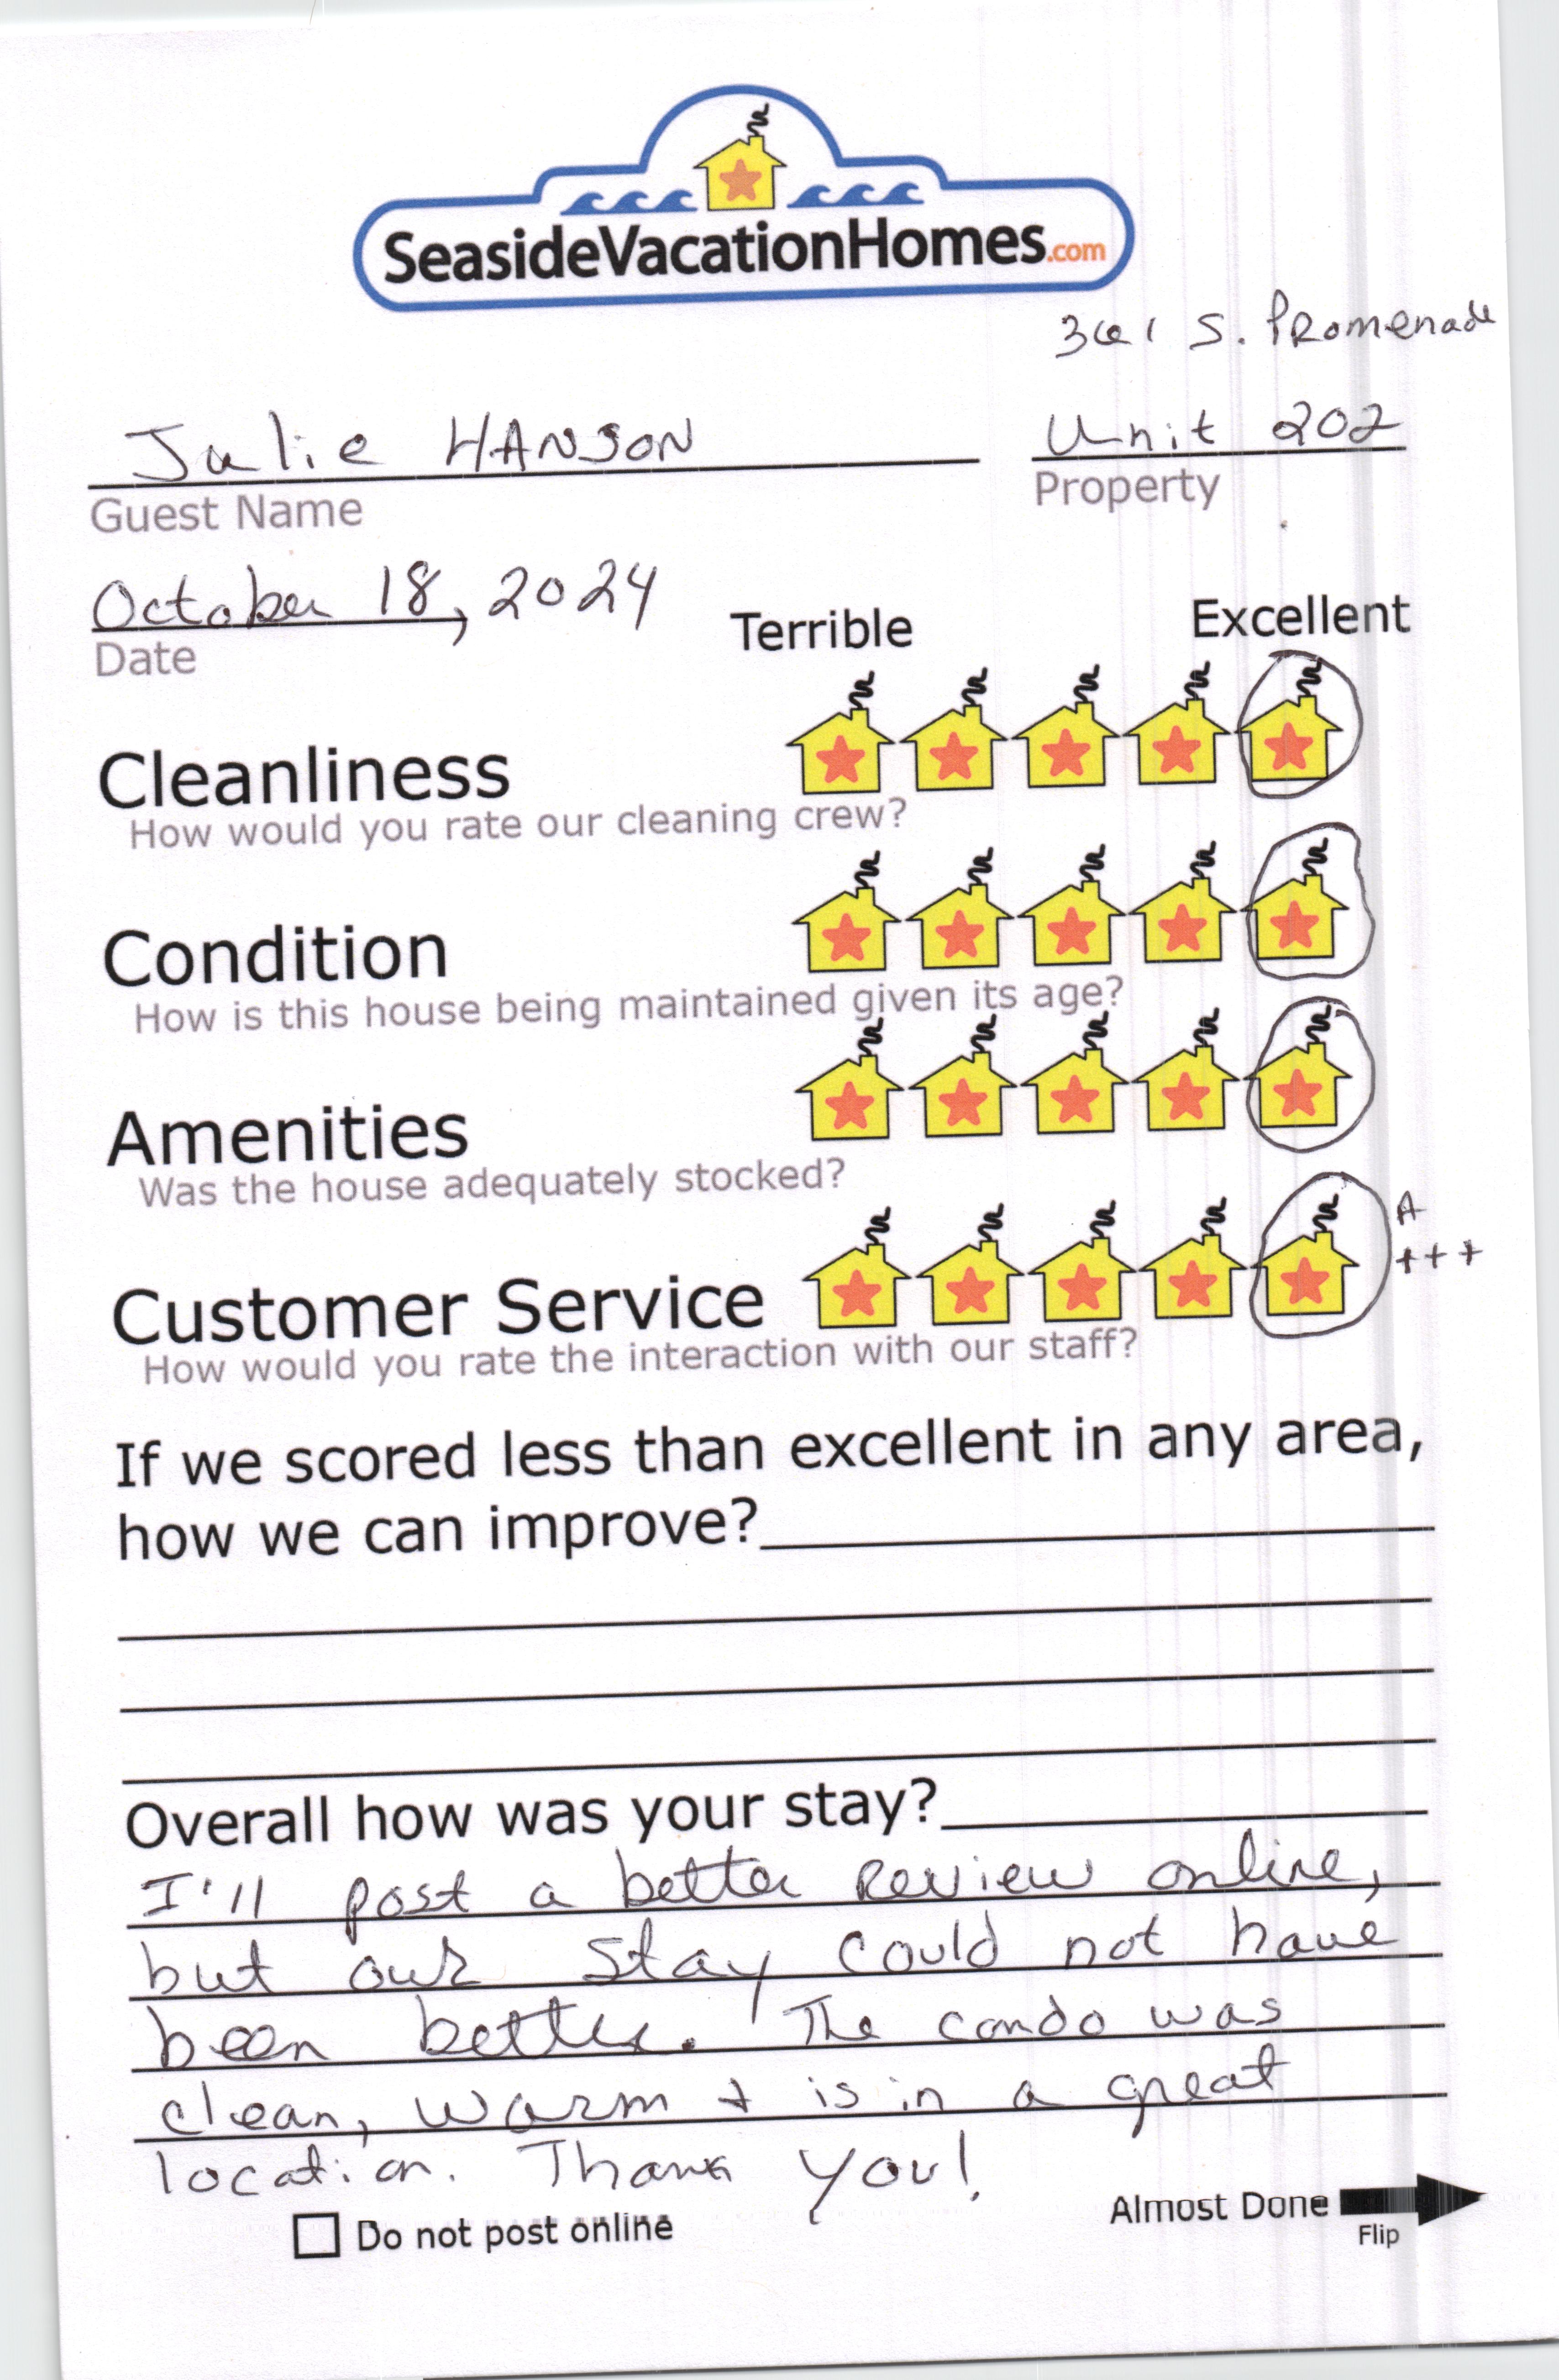 SeasideVacationHomes.com
361 S. Promenade
Julie HANSON
Unit 202
Guest Name
Property
October 18, 2024
Date
Terrible
Excellent
Cleanliness
How would you rate our cleaning crew?
Condition
How is this house being maintained given its age?
Amenities
Was the house adequately stocked?
A
+++
Customer Service
How would you rate the interaction with our staff?
If we scored less than excellent in any area,
how we can improve?
Overall how was your stay?
I'll post a better review online,
but our stay could not have
been better. The condo was
clean, warm + is in a great
location. Thank you!
Do not post online
Almost Done
Flip